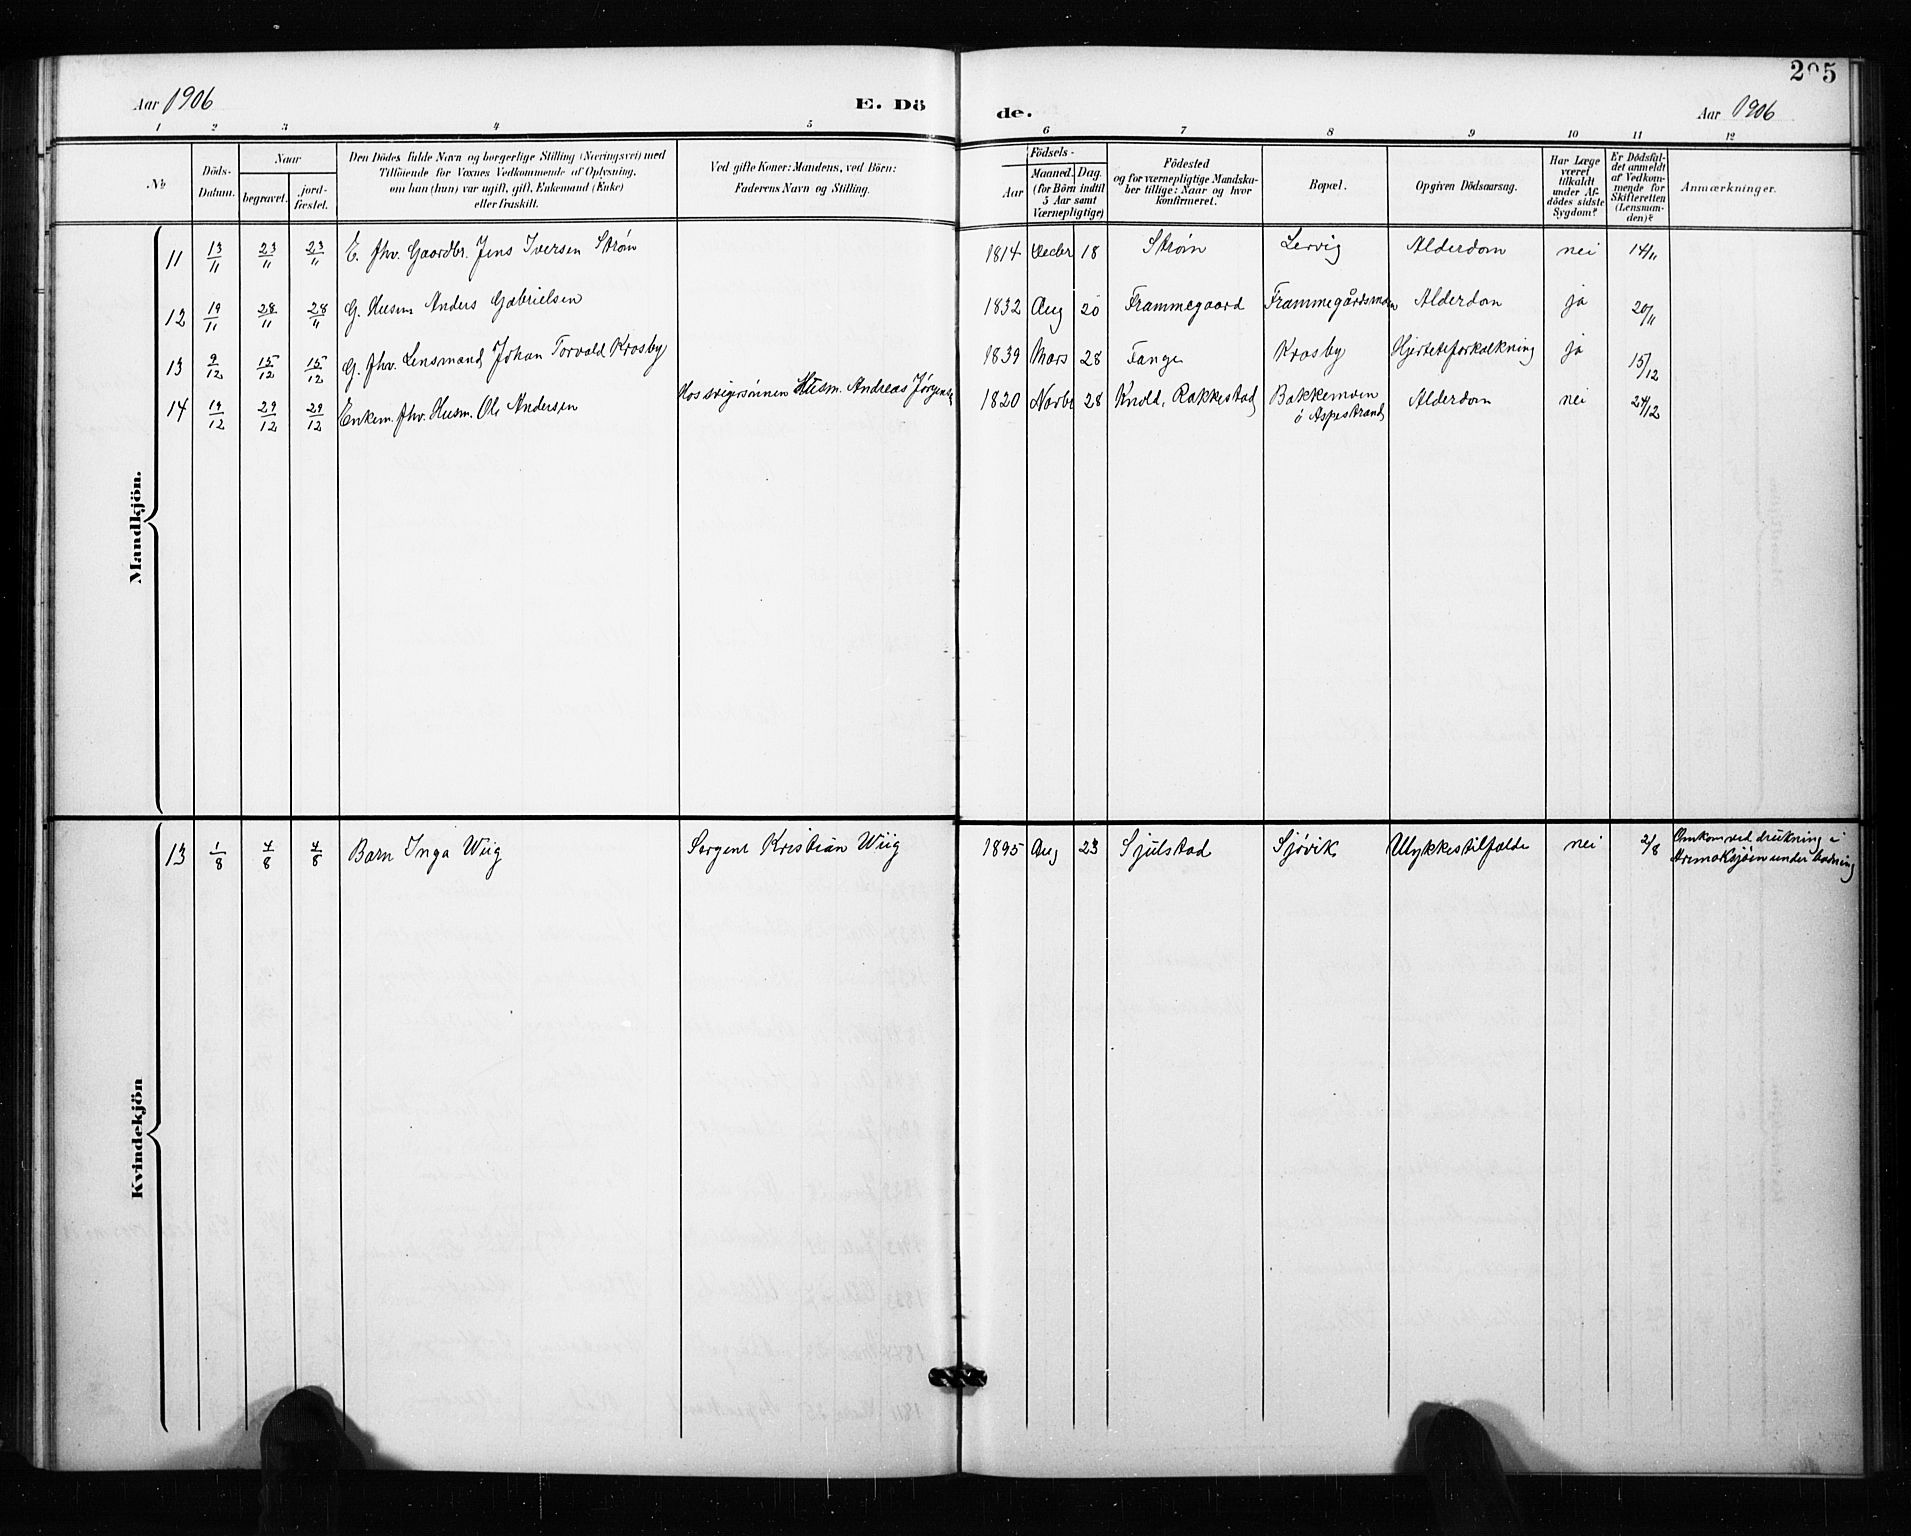 205
Aar 1906 E. Dö de. Aar 1906
1 2 3 4 5 6 7 8 9 10 11 12
No
Döds-Datum.
Naar
begravet.
jord-fæstet.
Den Dödes fulde Navn og borgerlige Stilling (Næringsvei) med
Tilföiende for Voxnes Vedkommende af Oplysning,
om han (hun) var ugift, gift, Enkemand (Enke)
eller fraskilt.
Ved gifte Koner: Mandens, ved Börn:
Faderens Navn og Stilling.
Födsels-
Aar
Maaned. Dag.
(for Börn indtil
5 Aar samt
Værnepligtige)
Födested
og for værnepligtige Mandska-
ber tillige: Naar og hvor
konfirmeret.
Bopæl.
Opgiven Dödsaarsag.
Har Læge
været
tilkaldt
under Af-
dödes sidste
Sygdom?
Er Dödsfal-
det anmeldt
af Vedkom-
mende for
Skifteretten
(Lensman-
den)?
Anmærkninger.
Mandkjön.
11 13/11 23/11 23/11 E. fhv. Gaardbr. Jens Iversen Strøn 1814 Decbr 18 Strøn Lervig Alderdom nei 14/11
12 19/11 28/11 28/11 G. Husm Anders Gabrielsen 1832 Aug 20 Frammegaard Frammegårdsmoen Alderdom ja 20/11
13 9/12 15/12 15/12 G. fhv. Lensmand Johan Torvald Krosby 1839 Mars 28 Fange Krosby Hjerteforkalkning ja 15/12
14 19/12 29/12 29/12 Enkem. fhv. Husm. Ole Andersen Hos svigersönnen Husm. Andreas Jørgensen 1820 Novbr 28 Knold, Rakkestad Bakkemoen
ö Aspestrand Alderdom nei 24/12
Kvindekjön
13 1/8 4/8 4/8 Barn Inga Wiig Sergent Kristian Wiig 1895 Aug 23 Sjulstad Sjøvik Ulykkestilfælde nei 2/8 Omkom ved drukning i
Aremarksjøen under badning